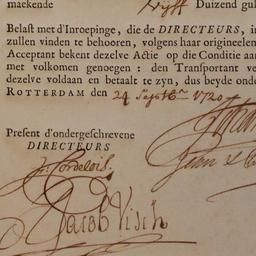 mackende Vijff Duizend gul
Belast met d'Inroepinge, die de DIRECTEURS, in
zullen vinden te behooren, volgens haar origineelen
Acceptant bekent dezelve Actie op die Conditie aan
met volkomen genoegen: den Transportant ve
dezelve voldaan en betaalt te zyn, dus beyde onde
ROTTERDAM den 24 Septbr 1720
Present d'ondergeschrevene
DIRECTEURS
Jacob Visch